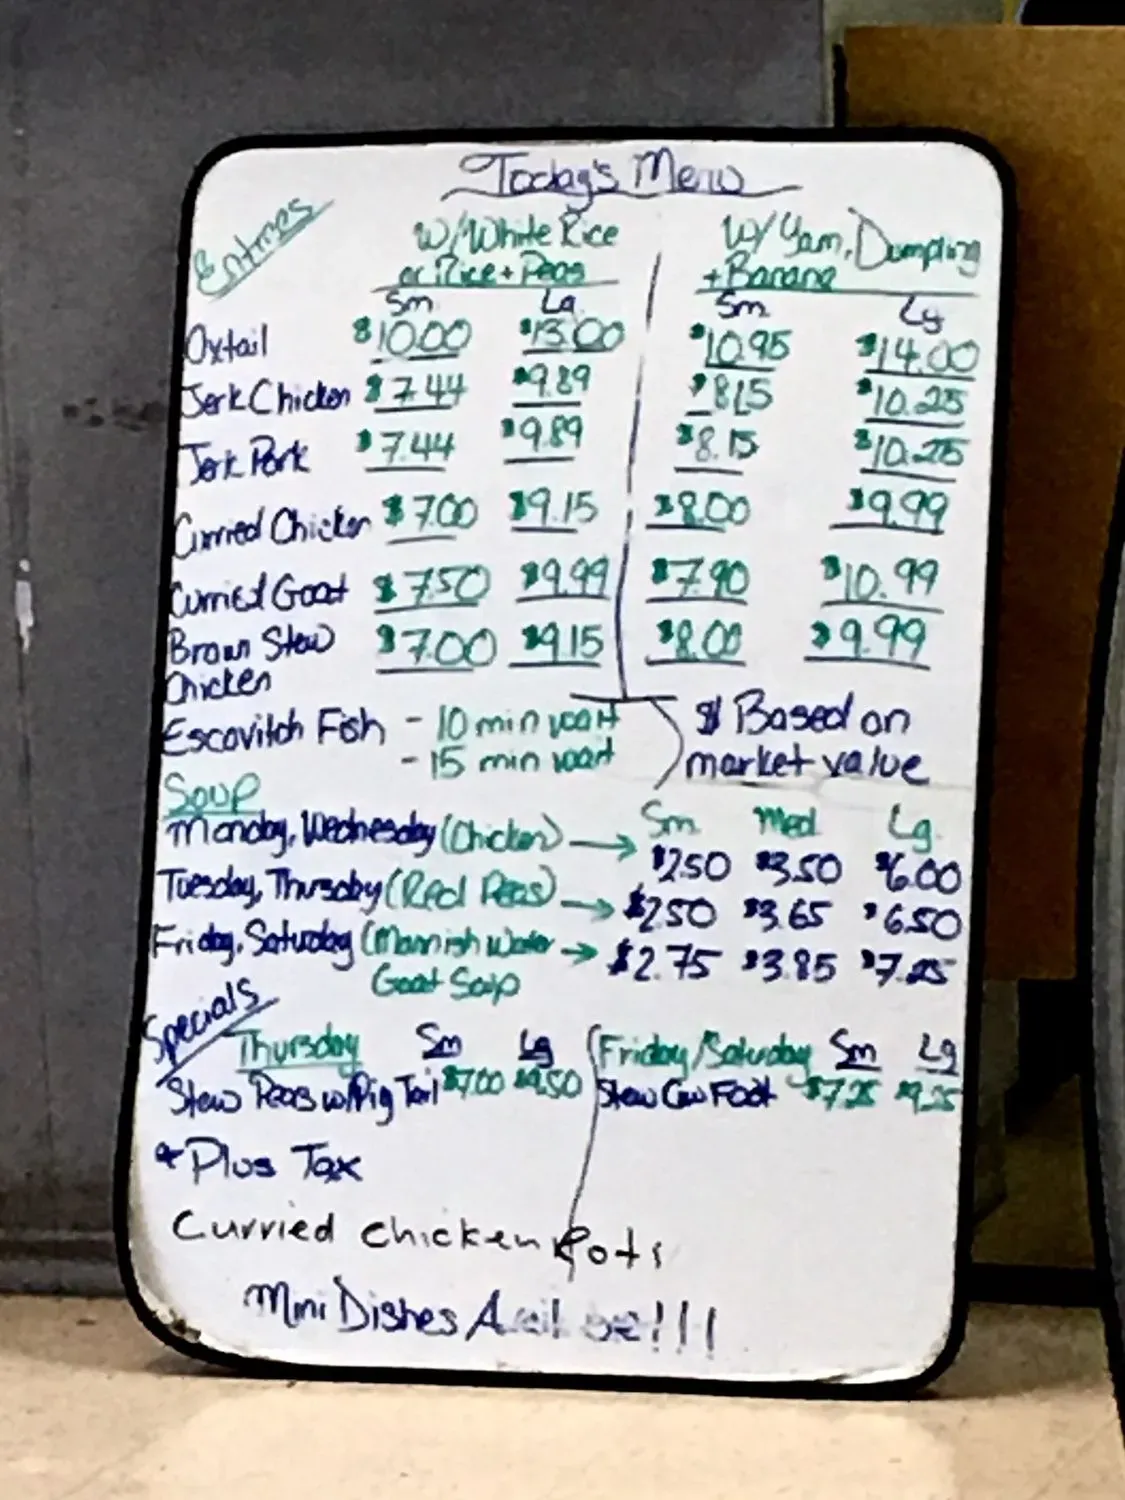 Today's Menu
Entrees
W/White Rice
or Rice + Peas
W/ Yam, Dumpling
+ Banana
Sm Lg Sm Lg
Oxtail $10.00 $13.00 $10.95 $14.00
Jerk Chicken $7.44 $9.89 $8.15 $10.25
Jerk Pork $7.44 $9.89 $8.15 $10.25
Curried Chicken $7.00 $9.15 $8.00 $9.99
Curried Goat $7.50 $9.99 $7.90 $10.99
Brown Stew $7.00 $9.15 $8.00 $9.99
Chicken
Escovitch Fish - 10 min wait
- 15 min wait
$ Based on
market value
Soup
Sm Med Lg.
Monday, Wednesday (Chicken) → $2.50 $3.50 $6.00
Tuesday, Thursday (Red Peas) → $2.50 $3.65 $6.50
Friday, Saturday (Mannish Water → $2.75 $3.85 $7.25
Goat Soup
Specials
Thursday Sm Lg
Stew Peas w/Pig Tail $7.00 $9.50
Friday/Saturday Sm Lg
Stew Cow Foot $7.25 $9.25
* Plus Tax
Curried chicken Rots
Mini Dishes !!!